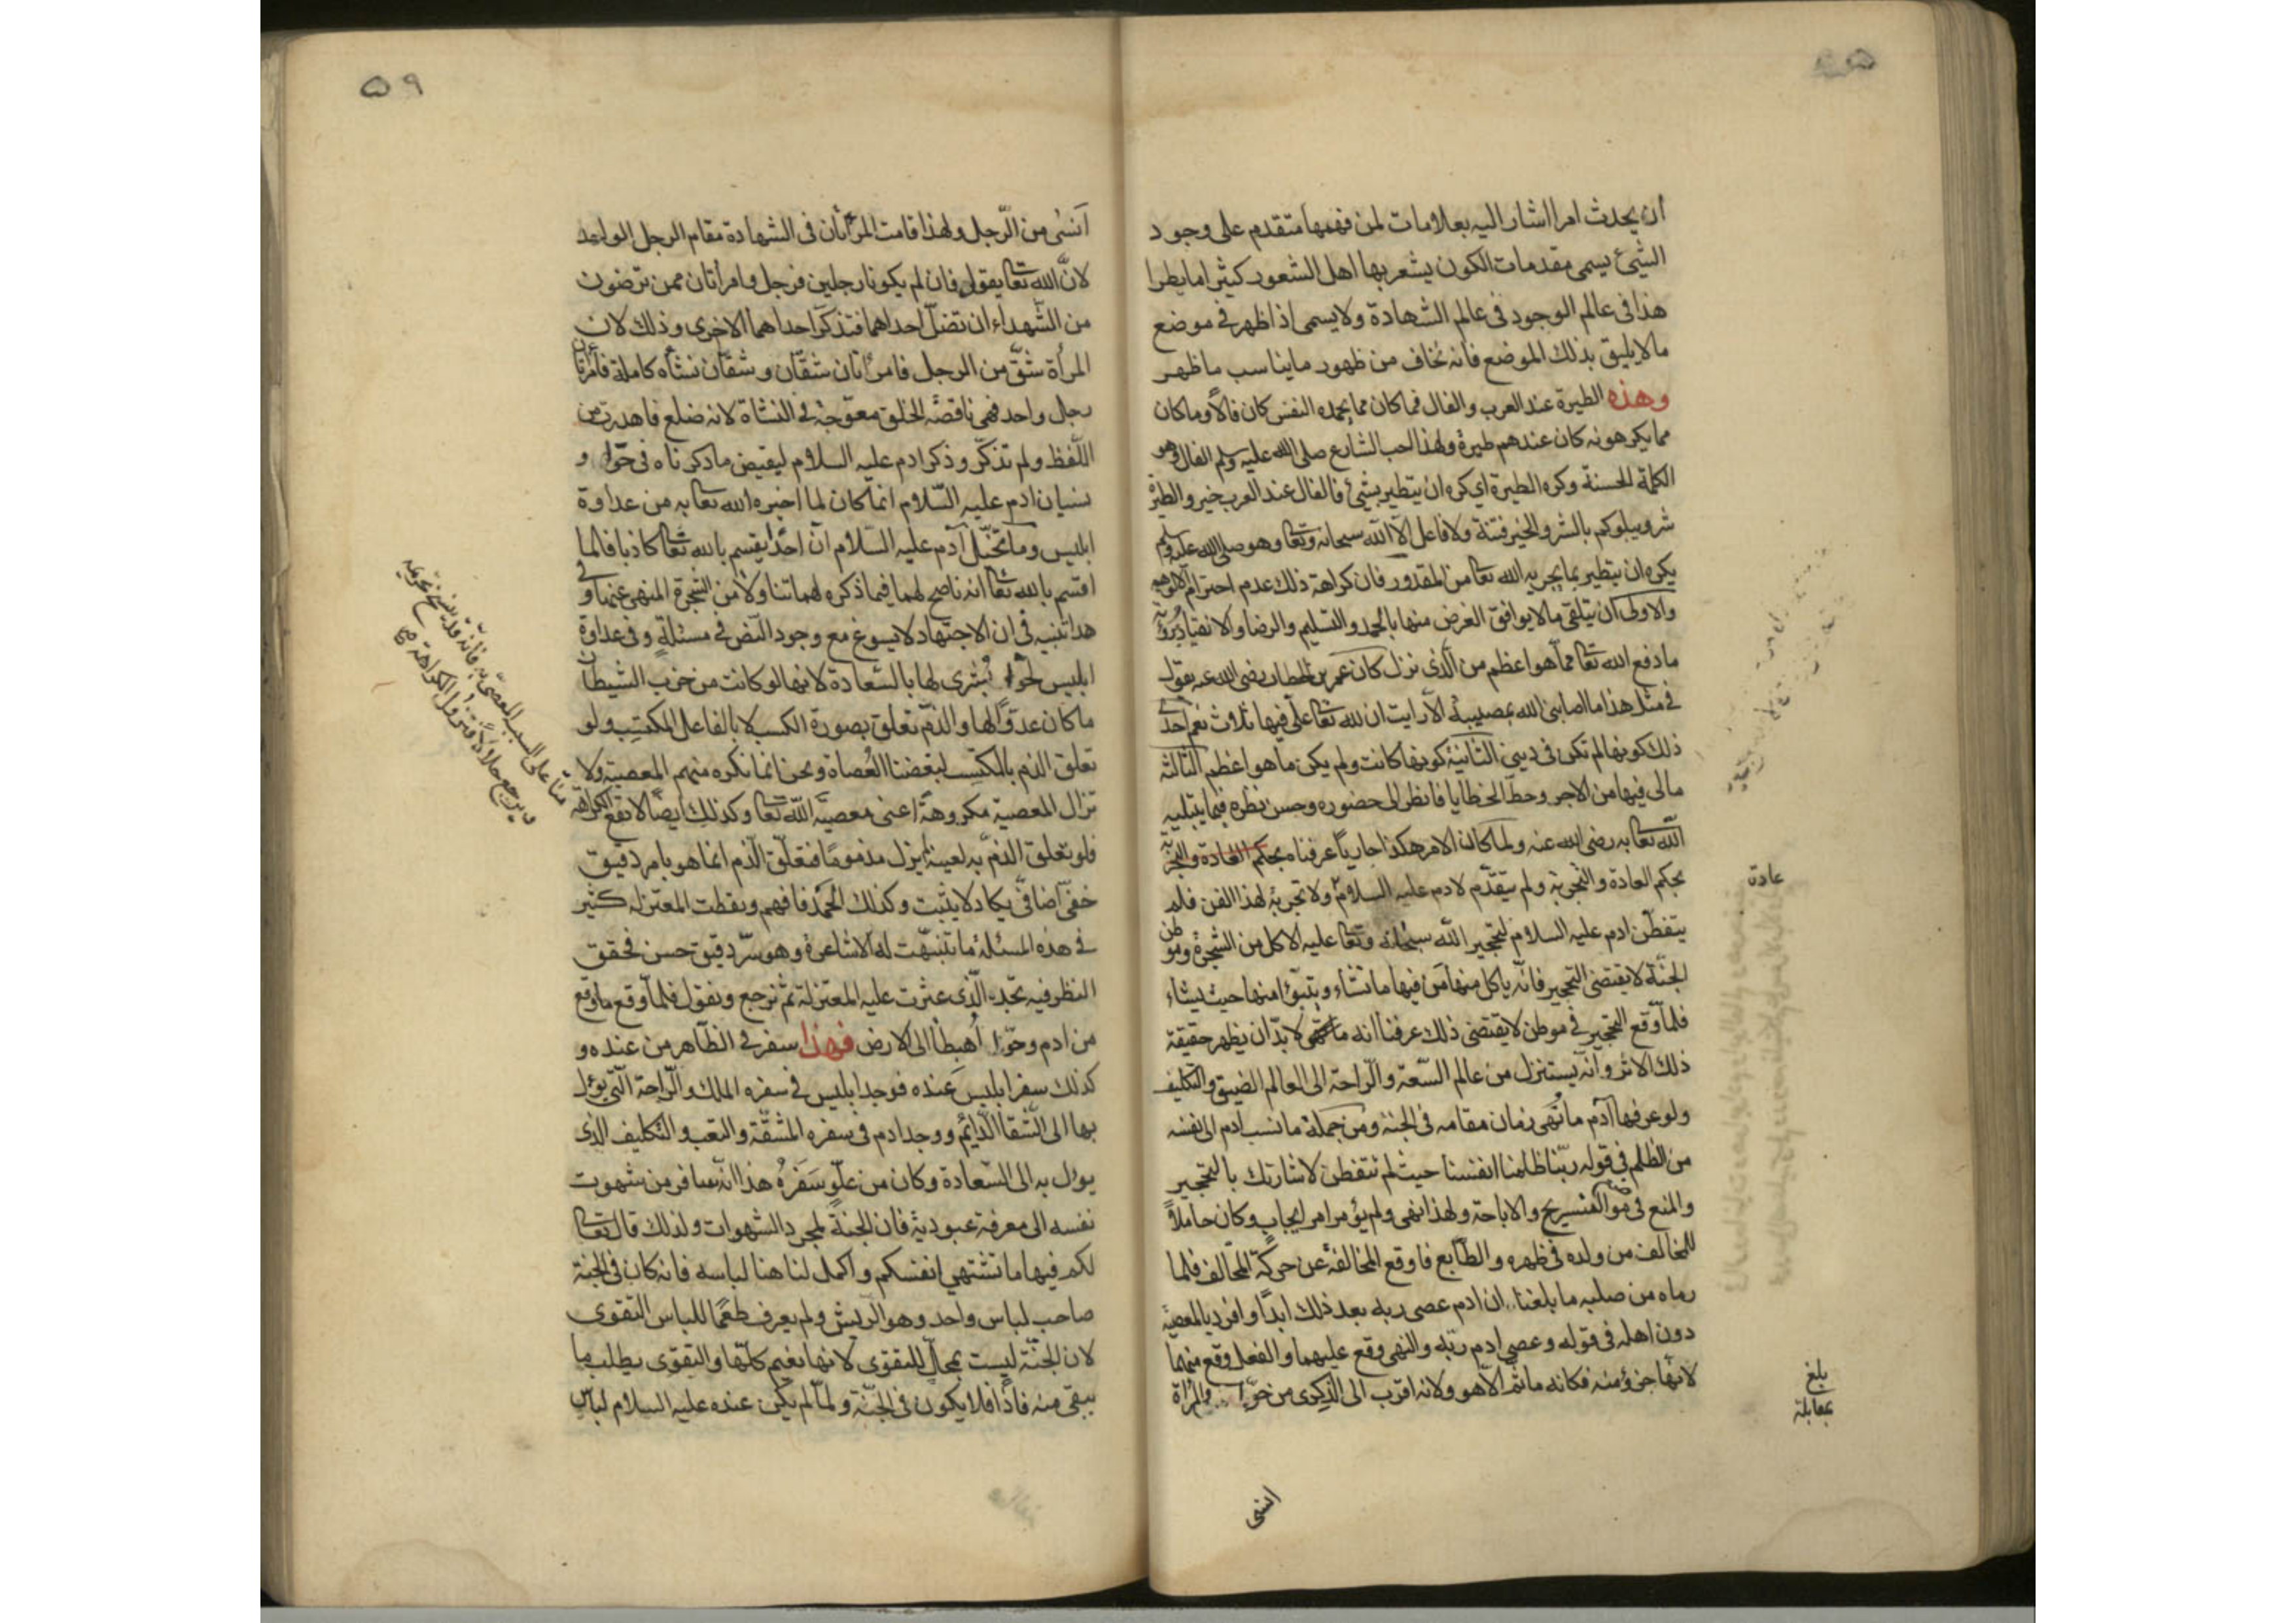 أن يحدث امرا اشار اليه بعلامات لمن فهمها متقدم على وجود
الشيئ يسمى مقدمات الكون يشعر بها اهل الشعور كثيرا ما يطرا
هذا فى عالم الوجود فى عالم الشهادة ولا يسمى اذا ظهر فى موضع
ما لا يليق بذلك الموضع فانه نخاف من ظهور ما يناسب ما ظهر
وهذه الطيرة عند العرب والفال فما كان مما يحمده النفس كان فالاً وما كان
مما يكرهونه كان عندهم طيرة ولهذا احب الشارع صلى الله عليه وسلم الفال وهو
الكلمة الحسنة وكره الطيرة اي كره ان يتطير بشيئ فالفال عند العرب خير والطيرة
شر ويبلوكم بالشر والخير فتنة ولا فاعل الا الله سبحانه وتعا وهو صلى الله عليه وسلم
يكره ان يتطير بما يجريه الله تعا من المقدور فان كراهة ذلك عدم احترام الالوهية
والاولى ان يتلقى ما لا يوافق الغرض منها بالحمد والتسليم والرضا والانقياد
ما دفع الله تعا مما هو اعظم من الذى نزل كان عمر بن الخطاب رضى الله عنه يقول
فى مثل هذا ما اصابنى الله بمصيبة الا رايت ان لله تعا على فيها ثلاث نعم احدى
ذلك كونها لم تكن فى دينى الثانية كونها كانت ولم يكن ما هو اعظم الثالثة
ما لى فيها من الاجر وحط الخطايا فانظر الى حضوره وحسن نظره فيما يبتليه
الله تعا به رضى الله عنه ولما كان الامر هكذا جارياً عرفناه بحكم العادة والتجربة
بحكم العادة والتجربة ولم يتقدم لادم عليه السلام ولا تجربة لهذا الفن فلم
عادة
يتفطن ادم عليه السلام لتحجير الله سبحانه وتعا عليه الاكل من الشجرة وموطن
الجنة لا يقتضى التحجير فانه ياكل منها من فيها ما تشاء ويتبوأ منها حيث يشاء
فلما وقع التحجير فى موطن لا يقتضى ذلك عرفنا انه لا بد ان يظهر حقيقة
ذلك الاثر وانه يستنزل من عالم السعة والراحة الى العالم الضيق والتكليف
ولو عرفها آدم ما تهى زمان مقامه فى الجنة ومن جملة ما نسب ادم الى نفسه
من الظلم فى قوله ربنا ظلمنا انفسنا حيث لم نتفطن لاشارتك بالتحجير
والمنع فى موضع التسريح والاباحة ولهذا نهى ولم يؤمر امر ايجاب وكان حاملاً
للمخالف من ولده فى ظهره والطابع فاوقع المخالفة عن حركة المخالف فلما
رماه من صلبه ما بلغنا ان ادم عصى ربه بعد ذلك ابداً وافرد بالمعصية
دون اهله فى قوله وعصى ادم ربه والنهى وقع عليهما والفعل وقع منهما
لانها جزؤ منه فكانه ما ثم الا هو ولانه اقرب الى الذكرى من حوا والمراة
بلغ
مقابلة
انسى
٥٩
انسى من الرجل ولهذا قامت المرأتان فى الشهادة مقام الرجل الواحد
لان الله تعا يقول فان لم يكونا رجلين فرجل وامرأتان ممن ترضون
من الشهداء ان تضل احداهما فتذكر احداهما الاخرى وذلك لان
المرأة شق من الرجل فامرأتان شقان وشقان نشأه كاملة فأمرأتان
رجل واحد فهى ناقصة الخلق معوجة فى النشاة لانه ضلع فاهدرت من
اللفظ ولم تذكر وذكر ادم عليه السلام ليقيض ما ذكرناه فى حوا و
نسيان ادم عليه السلام انما كان لما اخبره الله تعا به من عداوة
ابليس وما تخيل آدم عليه السلام ان احدا يقسم بالله تعا كاذبا فلما
اقسم بالله تعا انه ناصح لهما فيما ذكره لهما تناولا من الشجرة المنهى عنها وفى
هذا تنبيه فى ان الاجتهاد لا يسوغ مع وجود النص فى مسئلة وفى عداوة
ابليس لحوا بشرى لها بالسعادة لانها لو كانت من حزب الشيطان
ما كان عدوًا لها والذم تعلق بصورة الكسب لا بالفاعل المكتسب ولو
تعلق الذم بالمكتسب لبغضنا العصاة ونحن انما نكره منهم المعصية ولا
تزال المعصية مكروهةً اعنى معصية الله تعا وكذلك ايضًا لا تقع الكراهة
فلو تعلق الذم به لعينه لم يزل مذمومًا فتعلق الذم انما هو بامر دقيق
خفى اضافى يكاد لا يثبت وكذلك الحمد فافهم ونقطت المعتزلة كثير
فى هذه المسئلة ما تنبهت له الاشاعرة وهو سر دقيق حسن فحقق
النظر فيه تجد الذى عثرت عليه المعتزلة ثم نرجع ونقول فلما وقع ما وقع
من ادم وحوا اهبطا الى الارض فهذا سفر فى الظاهر من عنده و
كذلك سفر ابليس عنده فوجد ابليس فى سفره الملك والراحة التى يؤل
بها الى الشقا الدائم ووجد ادم فى سفره المشقة والتعب والتكليف الذى
يؤل به الى السعادة وكان من علو سفره هذا انه سافر من شهوت
نفسه الى معرفة عبوديته فان الجنة لمجرد الشهوات ولذلك قال تعا
لكم فيها ما تشتهي انفسكم واكمل لنا هنا لباسه فانه كان فى الجنة
صاحب لباس واحد وهو الريش ولم يعرف طعمًا للباس التقوى
لان الجنة ليست بمحل للتقوى لانها نعيم كلها والتقوى يطلب ما
يتقى منه فاذًا فلا يكون فى الجنة ولما لم يكن عنده عليه السلام لباس